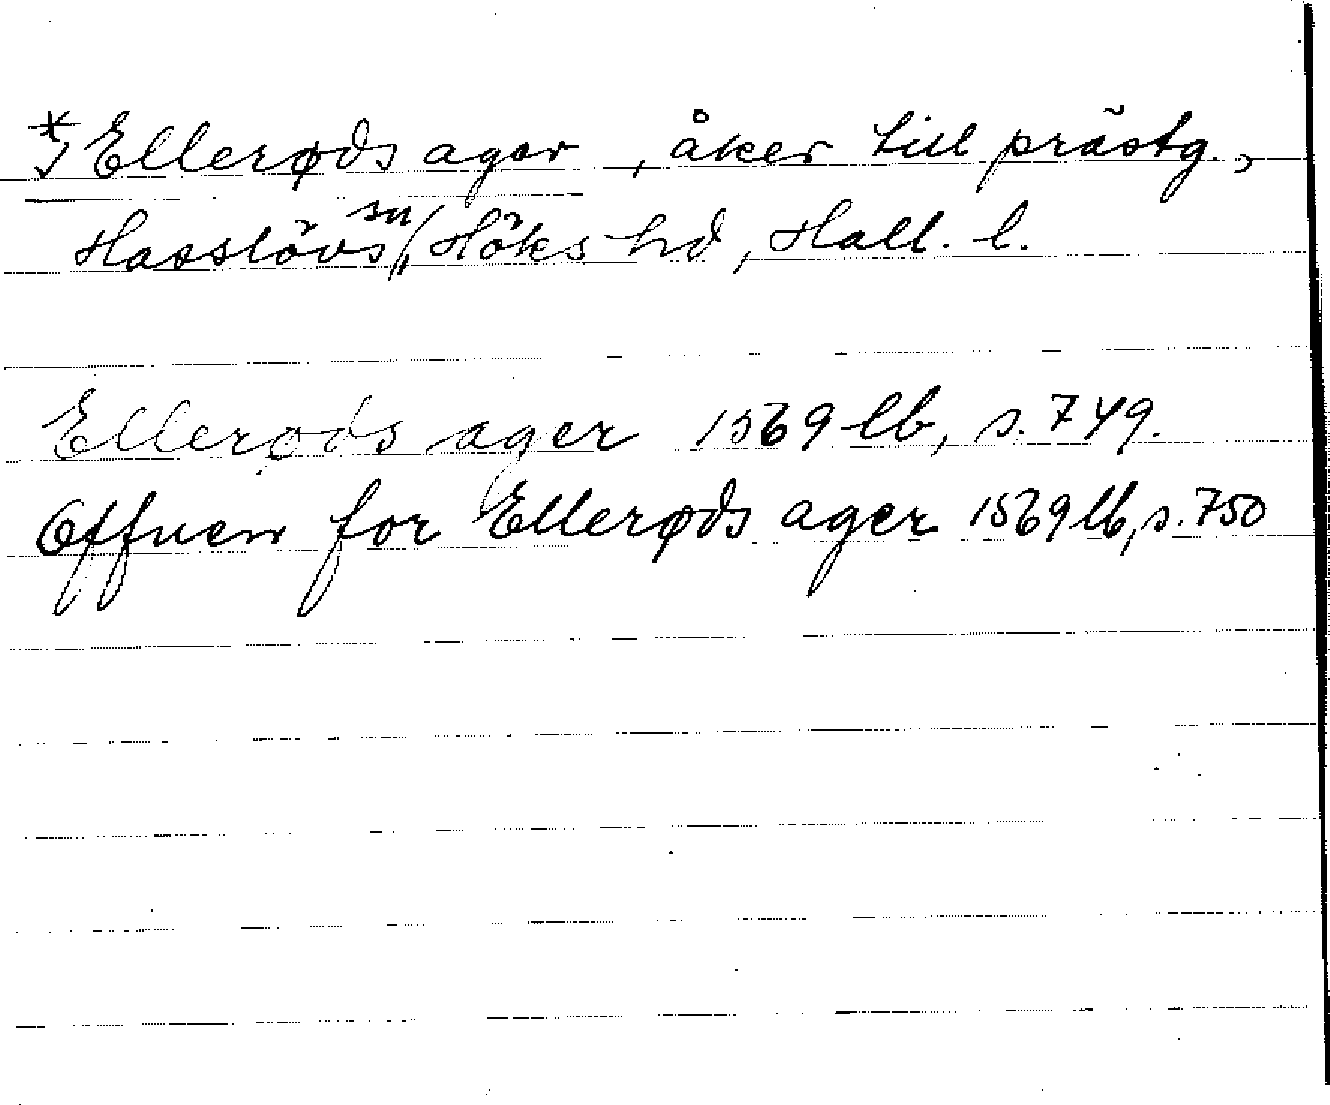 *Ellerøds ager, åker till prästg.,
Hasslövs sn, Höks hd, Hall. l.
Ellerøds ager 1569 lb, s. 749.
Offuen for Ellerøds ager 1569 lb, s. 750